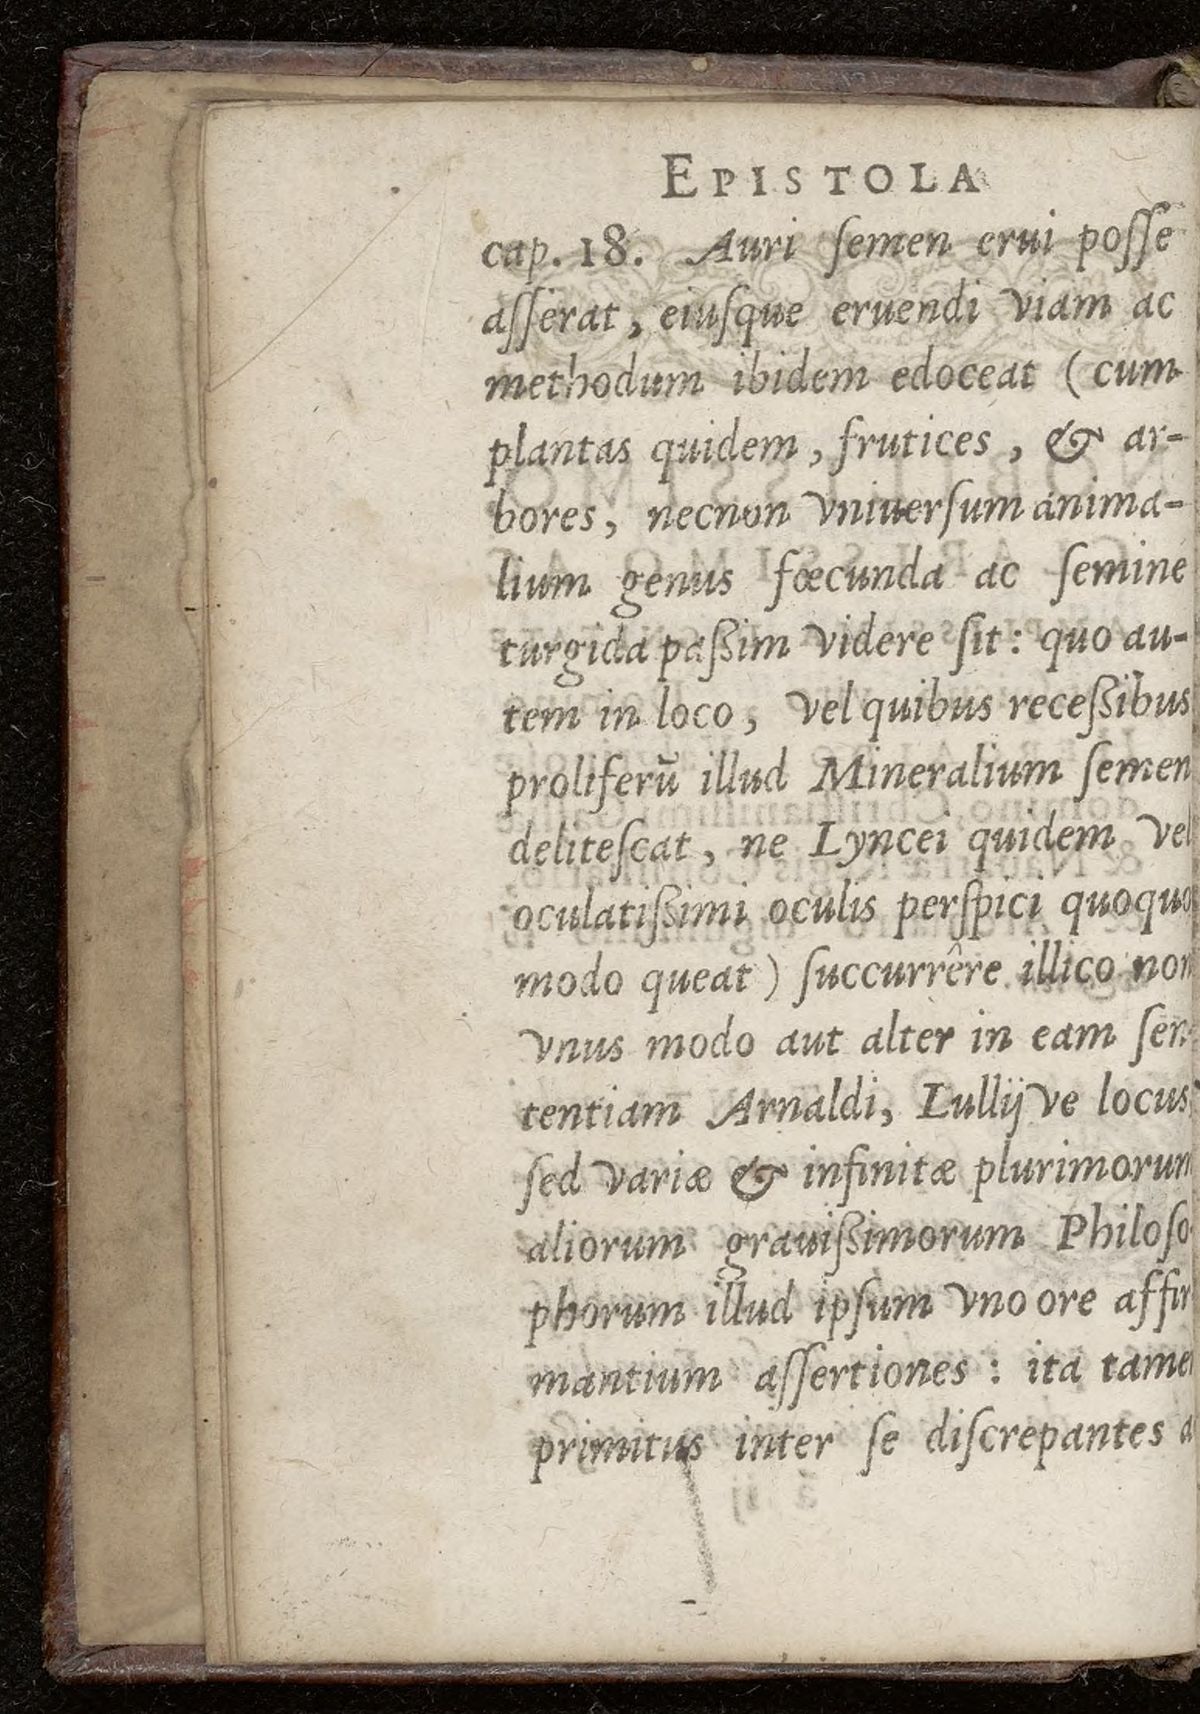 EPISTOLA
cap. 18. Auri ſemen erui poſſe
aſſerat, eiuſque eruendi viam ac
methodum ibidem edoceat (cum
plantas quidem, frutices, & ar-
bores, necnon vniuerſum anima-
lium genus fœcunda ac ſemine
turgida paßim videre ſit: quo au-
tem in loco, vel quibus receßibus
proliferū illud Mineralium ſemen
deliteſcat, ne Lyncei quidem vel
oculatißimi oculis perſpici quoquo
modo queat) ſuccurrêre illico non
vnus modo aut alter in eam ſen-
tentiam Arnaldi, Lullijve locus,
ſed variæ & infinitæ plurimorum
aliorum grauißimorum Philoſo-
phorum illud ipſum vno ore affir
mantium aſſertiones : ita tame
primitus inter ſe diſcrepantes a